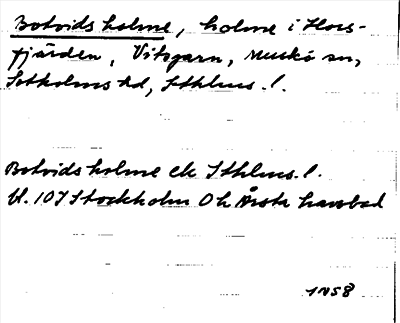 Botvidsholme, holme i Hors-
fjärden, Vitsgarn, Muskö sn,
Sotholms hd, Sthlms. l.
Botvidsholme ek Sthlms. l.
bl. 10I Stockholm O h Årsta havsbad
1N58